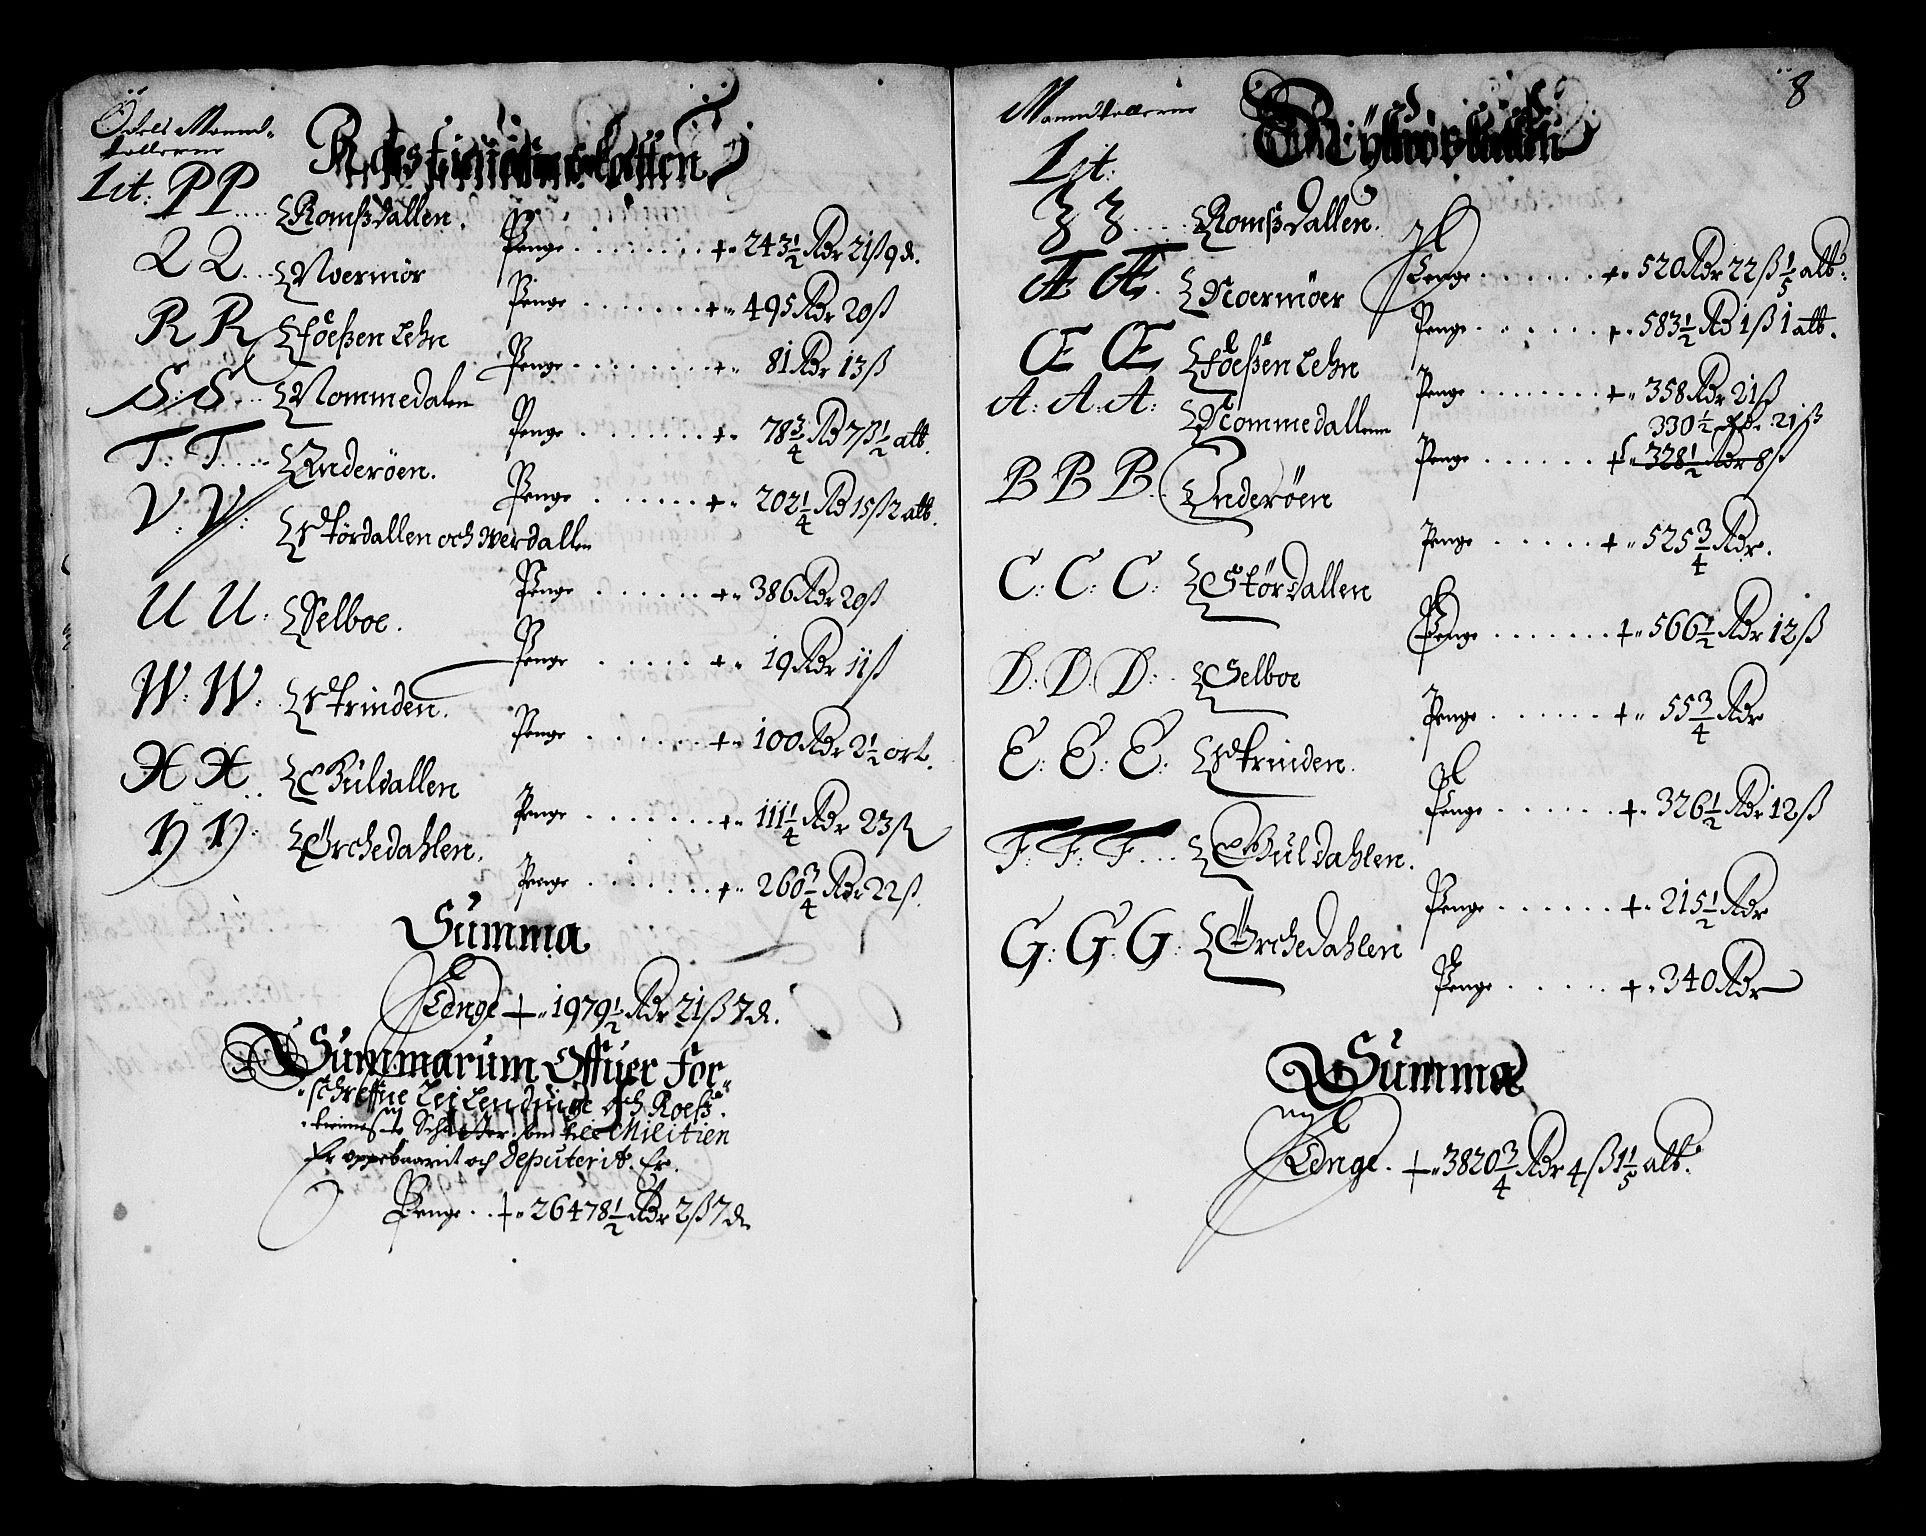 Odels Mannd-
tallerne
Rostienistskatten
Lit: PP.... Romßdallen.
Penge ........ +. 243½ Rdr 21ß 9 d.
QQ... Noermör
Penge ........ +. 495 Rdr 20ß
RR Foeßen Lehn
Penge ........ +. 81 Rdr 13ß
S: S... Nommedalen
Penge ........ +. 78¾ Rd 7ß ½ alb.
T: T.... Inderöen.
Penge ........ +. 202¼ Rd 15ß 2 alb.
V: V: Stördallen och Werdallen
Penge ...... +. 386 Rdr 20ß
U U: Selboe.
Penge ...... +. 19 Rdr 11ß
W: W: Strinden.
Penge ...... +. 100 Rdr 2½ ort.
X X.. Guldallen
Penge ....... +. 111¼ Rdr 23ß
Y Y: Örchedahlen.
Penge ....... +. 260¾ Rdr 22ß.
Summa
Penge +. 1979½ Rdr 21ß 7 d.
Summarum Offuer For-
schreffne Leilendinge och Roeß-
tienist Schatter som till Militien
Er oppebaarit och deputerit. Er.
Penge .. +. 26478½ Rdr 2ß 7 d.
8
Manndtallerne
Lit:
Z Z.... Romßdallen.
Penge ....... +. 520 Rdr 22ß 1/5 alb:
Æ Æ. Noermöer
Penge ....... +. 583½ Rd 1ß 1 alb.
Œ Œ Foeßen Lehn
Penge ....... +. 358 Rdr 21ß
A: A: A: Nommedallenn
330½ Rdr. 21ß
Penge ...... +. 328½ Rdr 8ß
B B B... Inderöen
Penge ...... +. 525¾ Rdr.
C: C: C: Stördallen
Penge ....... +. 566½ Rdr 12ß
D: D: D:. Selboe
Penge ...... +. 55¾ Rdr
E: E: E: Strinden.
Penge ...... +. 326½ Rdr 12ß
F: F: F.... Guldahlen.
Penge ...... +. 215½ Rdr
G: G: G: Örchedahlen
Penge ..... +. 340 Rdr
Summa
Penge. +. 3820¾ Rdr 4ß 1 1/5 alb.